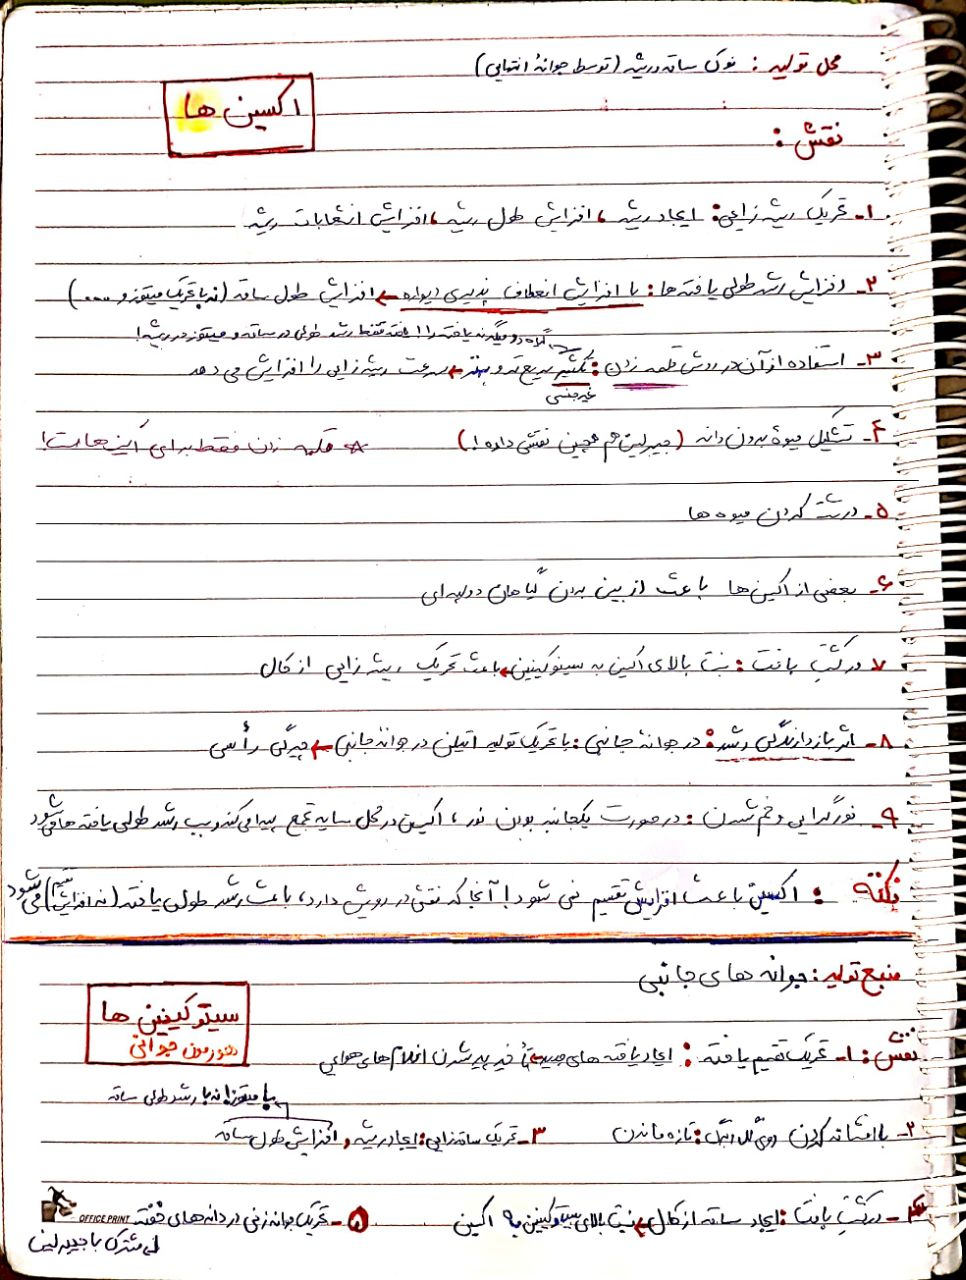 محل تولید: نوک ساقه و ریشه (توسط جوانهٔ انتهایی)
اکسین ها
نقش:
۱- تحریک ریشه زایی: ایجاد ریشه، افزایش طول ریشه، افزایش انشعابات ریشه
۲- افزایش رشد طولی یافته ها: با افزایش انعطاف پذیری دیواره ← افزایش طول ساقه (نه با تحریک میتوز و ....)
رشد طولی در ساقه و میتوز در ریشه!
۳- استفاده از آن در روش قلمه زدن: تکثیر سریع تر و بهتر ← سرعت ریشه زایی را افزایش می دهد
غیرجنسی
۴- تشکیل میوهٔ بدون دانه (جیبرلین هم همچین نقشی داره!) * قلمه زدن فقط برای اکسین هاست!
۵- درشت کردن میوه ها
۶- بعضی از اکسین ها باعث از بین بردن گیاهان دولپه ای
۷- در کشتِ بافت: نسبت بالای اکسین به سیتوکینین ← باعث تحریک ریشه زایی از کال
۸- اثر بازدارندگی رشد: در جوانهٔ جانبی: با تحریک تولید اتیلن در جوانه جانبی ← چیرگی رأسی
۹- نورگرایی و خم شدن: در صورت یکجانبه بودن نور، اکسین در محل سایه تجمع پیدا می کند و سبب رشد طولی یافته ها می شود
نکته: اکسین باعث افزایش تقسیم نمی شود! آنجا که نقش در رویش دارد، باعث رشد طولی یافته (نه افزایش تقسیم) می شود
منبع تولید: جوانه های جانبی
سیتوکینین ها
هورمون جوانی
نقش: ۱- تحریک تقسیم یافته: ایجاد یافته های جدید ← تأخیر پیر شدن اندام های هوایی
با میتوز! نه با رشد طولی ساقه
۲- با افشانه کردن روی گل و برگ: تازه ماندن ۳- تحریک ساقه زایی: ایجاد ریشه و افزایش طول ساقه
۴- در کشت بافت: ایجاد ساقه از کال ← نسبت بالای سیتوکینین به اکسین ۵- تحریک جوانه زنی در دانه های خفته
OFFICE PRINT
مشترک با جیبرلین